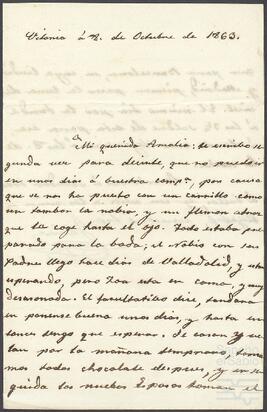 Vitoria á 2. de Octubre de 1863.
Mi querida Amalia: te escribo se
gunda vez para decirte, que no puedo ir
en unos dias á buestra comp.ª, por causa
que se nos ha puesto con un carrillo como
un tambor la nobia, y un flemon atroz
que le coge hasta el ojo. Todo estaba pre
parado para la boda; el Nobio con sus
Padres llego hace dias de Valladolid, y esta
esperando, pero Zoa esta en cama, y muy
desazonada. El facultatibo dice, tardara
en ponerse buena unos dias, y hasta en
tonces tengo que esperar. Se casan, y
tan por la mañana temprano, toma
mos todos chocolate despues, y en se
guida los nuebos Esposos toman el